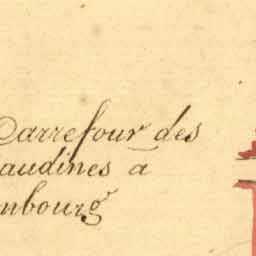 Carrefour des
audines a
nbourg